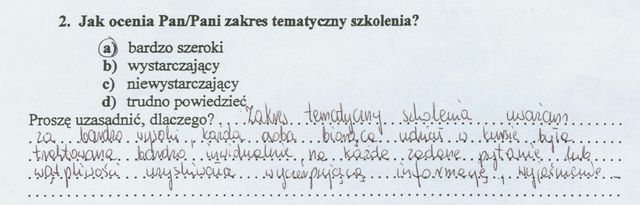 2. Jak ocenia Pan/Pani zakres tematyczny szkolenia?
a) bardzo szeroki
b) wystarczający
c) niewystarczający
d) trudno powiedzieć
Proszę uzasadnić, dlaczego? Zakres tematyczny szkolenia uważam
za bardzo wysoki, każda osoba biorąca udział w kursie była
traktowana bardzo inwidualnie, na każde zadane pytanie lub
wątpliwości uzyskiwana wyczerpującą informację, wyjaśnienie